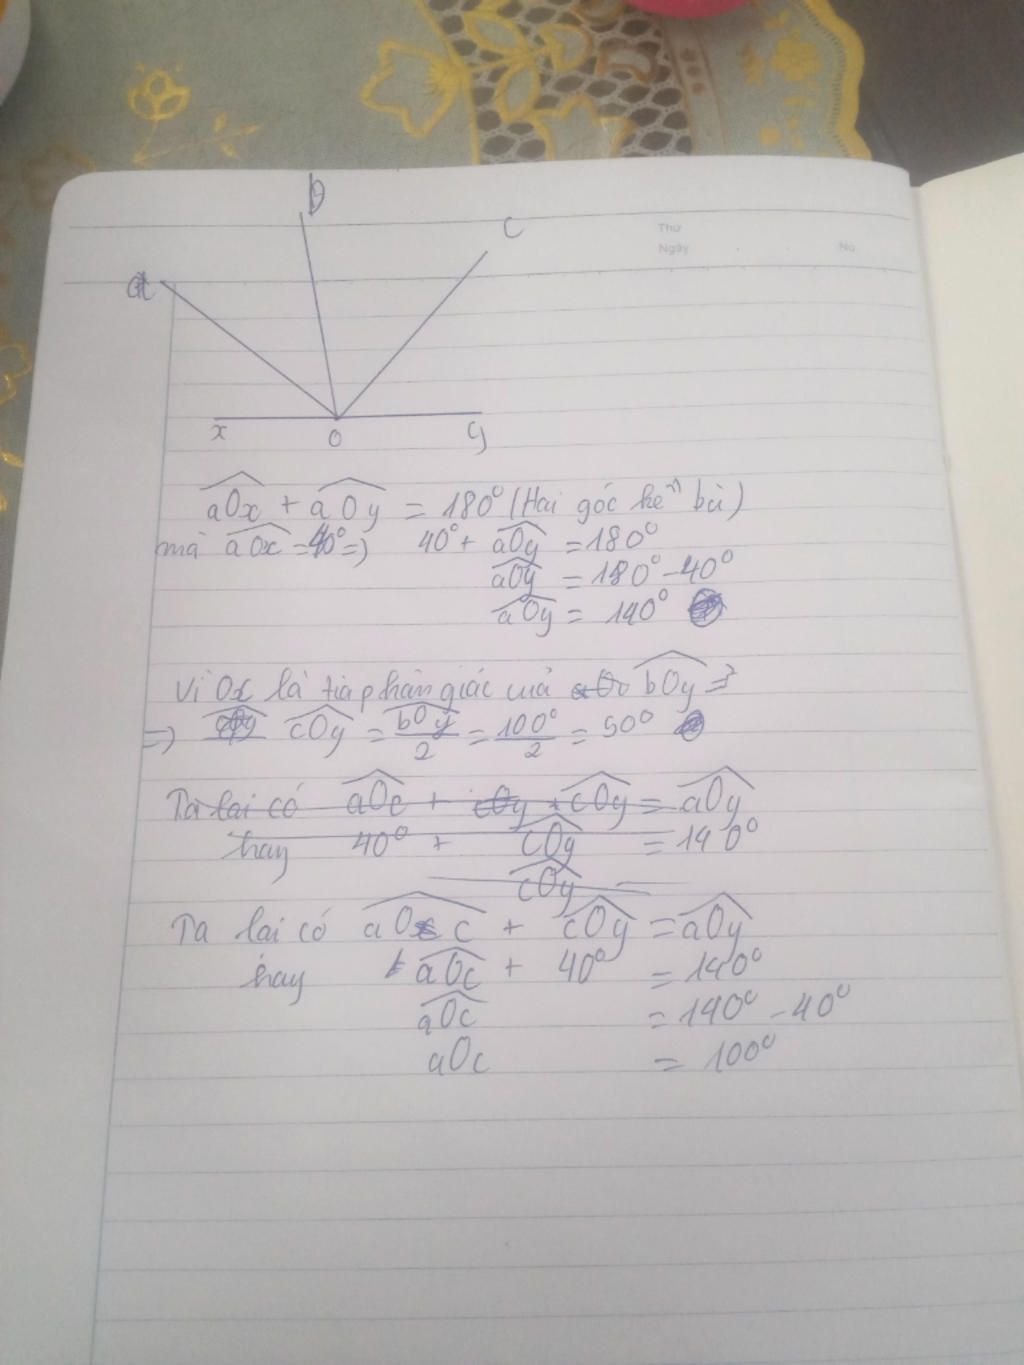 b
c
Thứ
Ngày
No
a
x
O
y
aOx + aOy = 180° (Hai góc kề bù)
mà aOx = 40° =) 40° + aOy = 180°
aOy = 180° - 40°
aOy = 140°
Vì Ox là tia phân giác của aOc bOy =>
=) cOy cOy = bOy/2 = 100°/2 = 50°
Ta lại có aOc + cOy + cOy = aOy
hay 40° + cOy = 140°
cOy
Ta lại có aOc + cOy = aOy
hay aOc + 40° = 140°
aOc = 140° - 40°
aOc = 100°